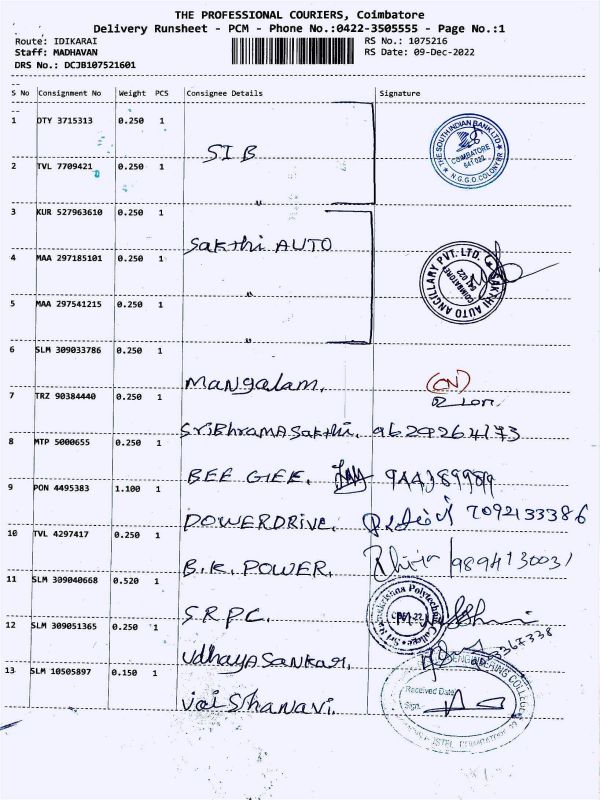 THE PROFESSIONAL COURIERS, Coimbatore
Delivery Runsheet - PCM - Phone No.:0422-3505555 - Page No.:1
Route: IDIKARAI RS No.: 1075216
Staff: MADHAVAN RS Date: 09-Dec-2022
DRS No.: DCJB107521601
S No Consignment No Weight PCS Consignee Details Signature
1 DTY 3715313 0.250 1 SIB
THE SOUTH INDIAN BANK LTD COIMBATORE 641 022 N.G.G.O.COLONY BR
2 TVL 7709421 0.250 1 "
3 KUR 527963610 0.250 1 Sakthi AUTO
4 MAA 297185101 0.250 1 "
SAKTHI AUTO ANCILLARY PVT. LTD. COIMBATORE 641 022
5 MAA 297541215 0.250 1 "
6 SLM 309033786 0.250 1 Mangalam. (CN)
7 TRZ 90384440 0.250 1 SriBhramASakthi. 9629264173
8 MTP 5000655 0.250 1 BEE GEE.
9 PON 4495383 1.100 1 POWERDRIVE. 7092133386
10 TVL 4297417 0.250 1 B.K. POWER. 9894130031
11 SLM 309040668 0.520 1 S.R.P.C.
Polytechnic College
12 SLM 309051365 0.250 1 UdhayaSankar.
13 SLM 10505897 0.150 1 Vaishanavi.
ENGINEERING COLLEGE
Received Date
Sign.